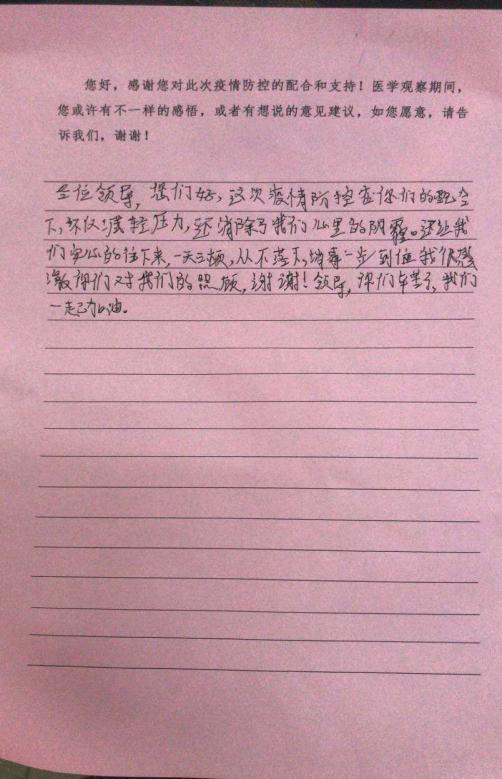 您好，感谢您对此次疫情防控的配合和支持！医学观察期间，
您或许有不一样的感悟，或者有想说的意见建议，如您愿意，请告
诉我们，谢谢！
各位领导，您们好，这次疫情防控在你们的配合
下，不仅减轻压力，还消除了我们心里的阴霾。还让我
们安心的住下来，一天三顿，从不落下，消毒一步到位我很感
激你们对我们的照顾，谢谢！领导，你们辛苦了，我们
一起加油。